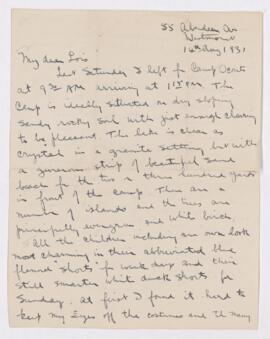 55 Aberdeen Av
Westmount
16th Aug 1931
My dear Lois
Last Saturday I left for Camp Oconto
at 9 AM arriving at 1 PM. The
Camp is ideally situated on dry sloping
sandy rocky soil with just enough clearing
to be pleasant. The lake is clear as
crystal in a granite setting but with
a generous strip of beautiful sand
beach for the two or three hundred yards
in front of the camp. There are a
number of islands and the trees are
principally evergreen and white birch.
All the children including our own look
most charming in their abbreviated blue
flannel "shorts" for week days and their
still smarter white duck shorts for
Sunday. At first I found it hard to
keep my eyes off the costumes and the many